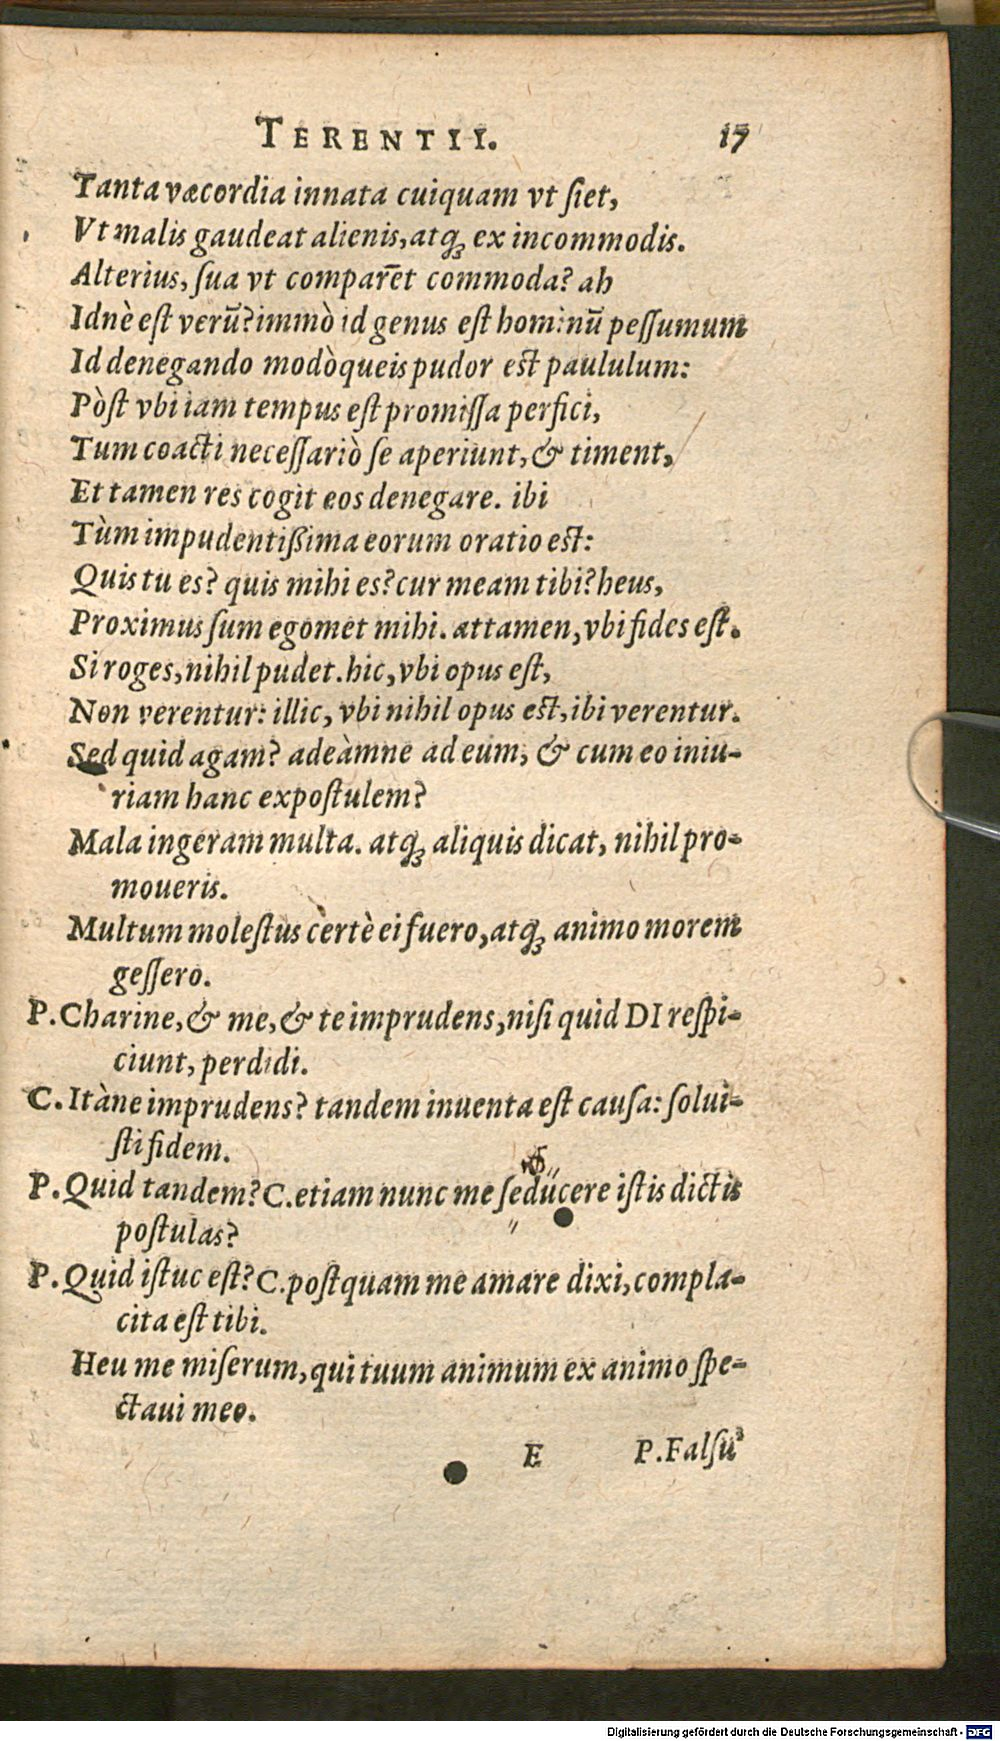 TERENTII. 17
Tanta væcordia innata cuiquam vt ſiet,
Vt malis gaudeat alienis, atq; ex incommodis.
Alterius, ſua vt comparēt commoda? ah
Idnè eſt verū? immò id genus eſt hominū peſſumum
Id denegando modò queis pudor eſt paululum:
Pòſt vbi iam tempus eſt promiſſa perfici,
Tum coacti neceſſariò ſe aperiunt, & timent,
Et tamen res cogit eos denegare. ibi
Tùm impudentißima eorum oratio eſt:
Quis tu es? quis mihi es? cur meam tibi? heus,
Proximus ſum egomet mihi. attamen, vbi fides eſt.
Si roges, nihil pudet. hic, vbi opus eſt,
Non verentur: illic, vbi nihil opus eſt, ibi verentur.
Sed quid agam? adeàmne ad eum, & cum eo iniu-
riam hanc expoſtulem?
Mala ingeram multa. atq; aliquis dicat, nihil pro-
moueris.
Multum moleſtus certè ei fuero, atq; animo morem
geſſero.
P. Charine, & me, & te imprudens, niſi quid DI reſpi-
ciunt, perdidi.
C. Itàne imprudens? tandem inuenta eſt cauſa: ſolui-
ſti fidem.
P. Quid tandem? C. etiam nunc me ſeducere iſtis dictis
poſtulas?
P. Quid iſtuc eſt? C. poſtquam me amare dixi, compla-
cita eſt tibi.
Heu me miſerum, qui tuum animum ex animo ſpe-
ctaui meo.
E P. Falſū
Digitalisierung gefördert durch die Deutsche Forschungsgemeinschaft - DFG